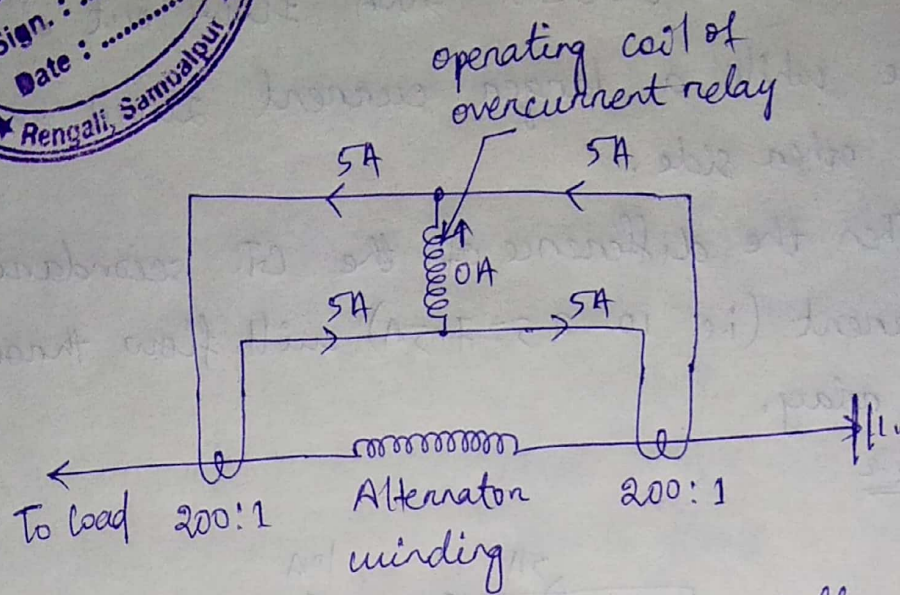 Sign. :
Date :
★ Rengali, Sambalpur
operating coil of
overcurrent relay
5A
5A
0A
5A
5A
To load
200:1
Alternator
winding
200:1